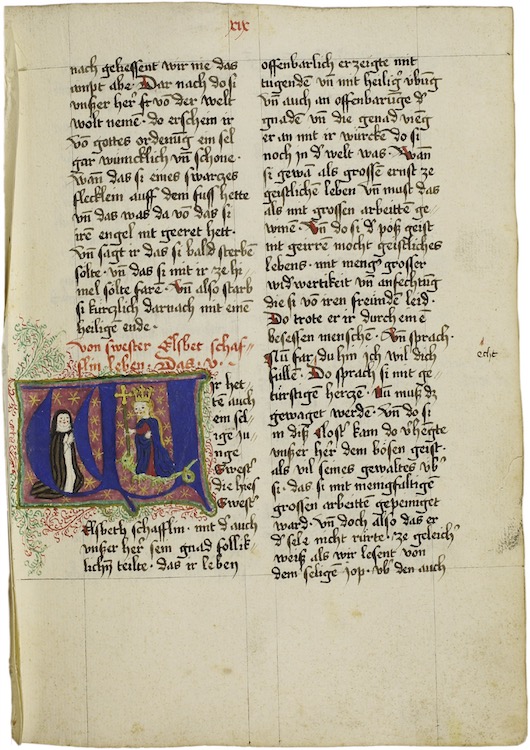 xix
nach geliessent wir nie das
ampt abe. Dar nach do si
vnßer her ſt võ der welt
wolt nemē. do erschein ir
võ gottes ordenūg ein sel
gar wunicklich vñ schone.
wañ das si eines swarczes
flecklein auff dem fuss hette
vñ das was da võ das si
irē engel mit geeret hett.
vñ sagt ir das si bald sterbē
sölte. vñ das si mit ir ze hi
mel sölte farē. Vñ also starb
si kurczlich darnach mit einē
heiligē ende.
von swester Elsbet schaf
flin leben. Das. v.
Wir het
tē auch
ein sel
ige iu
nge
swest
die hies
swest
Elsbeth schafflin. mit d' auch
vnßer her sein gnad follik
lichn teilte. das ir leben
offenbarlich erzeigte mit
tugende vñ mit heilig' vbūg
vñ auch an offenbarūge d'
gnaden vñ die genad vieng
er an mit ir würcke do si
noch in d' welt was. Wañ
si gewā als grossē ernst ze
geistlichen leben vñ must das
als mit grossen arbeittē ge
wine. Vñ do si d' poß geist
mit geirrē mocht geistliches
lebens. mit meng' grosser
wid'wertikeit vñ anfechtūg
die si vō iren freundē leid.
Do trote er ir durch ein ē
besessen menschē. Vñ sprach.
Nu far du hin ich wil dich
fullē. Do sprach si mit ge
echt
türstigen herzē. Nu muß dz
gewaget werdē. Vñ do si
in diß closter kam do v'hengte
vnßer her dem bösen geist.
als vil seines gewaltes vb'
si. das si mit menigfultigē
grossen arbeittē gepeiniget
ward. vñ doch also das er
d' sele nicht rürte. ze geleich'
weiß als wir lesent von
dem seligen Jop. vb' den auch